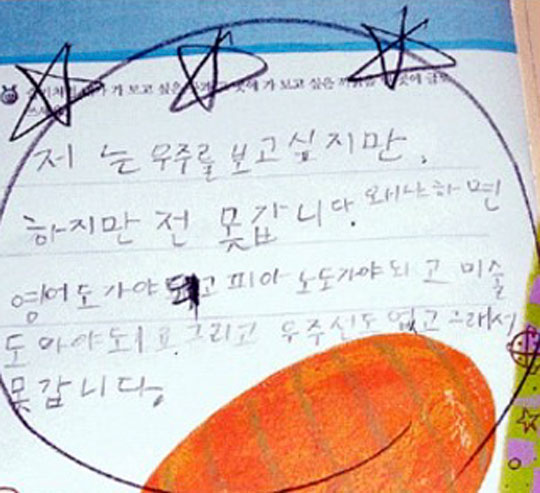 가 보고 싶은 곳에 가 보고 싶은 까닭을 곳에 글로
저 는 우주를 보고싶지만.
하지만 전 못갑니다. 왜냐하면
영어도가야되고 피아노도가야되고 미술
도 와야되고 그리고 우주선도 없고 그래서
못갑니다.